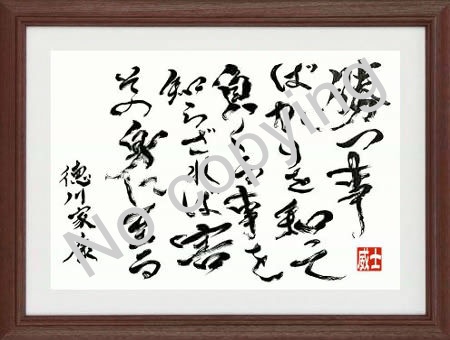 勝つ事
ばかりを知て
負くる事を
知らざれば害
その身に至る
徳川家康
威士
No copying